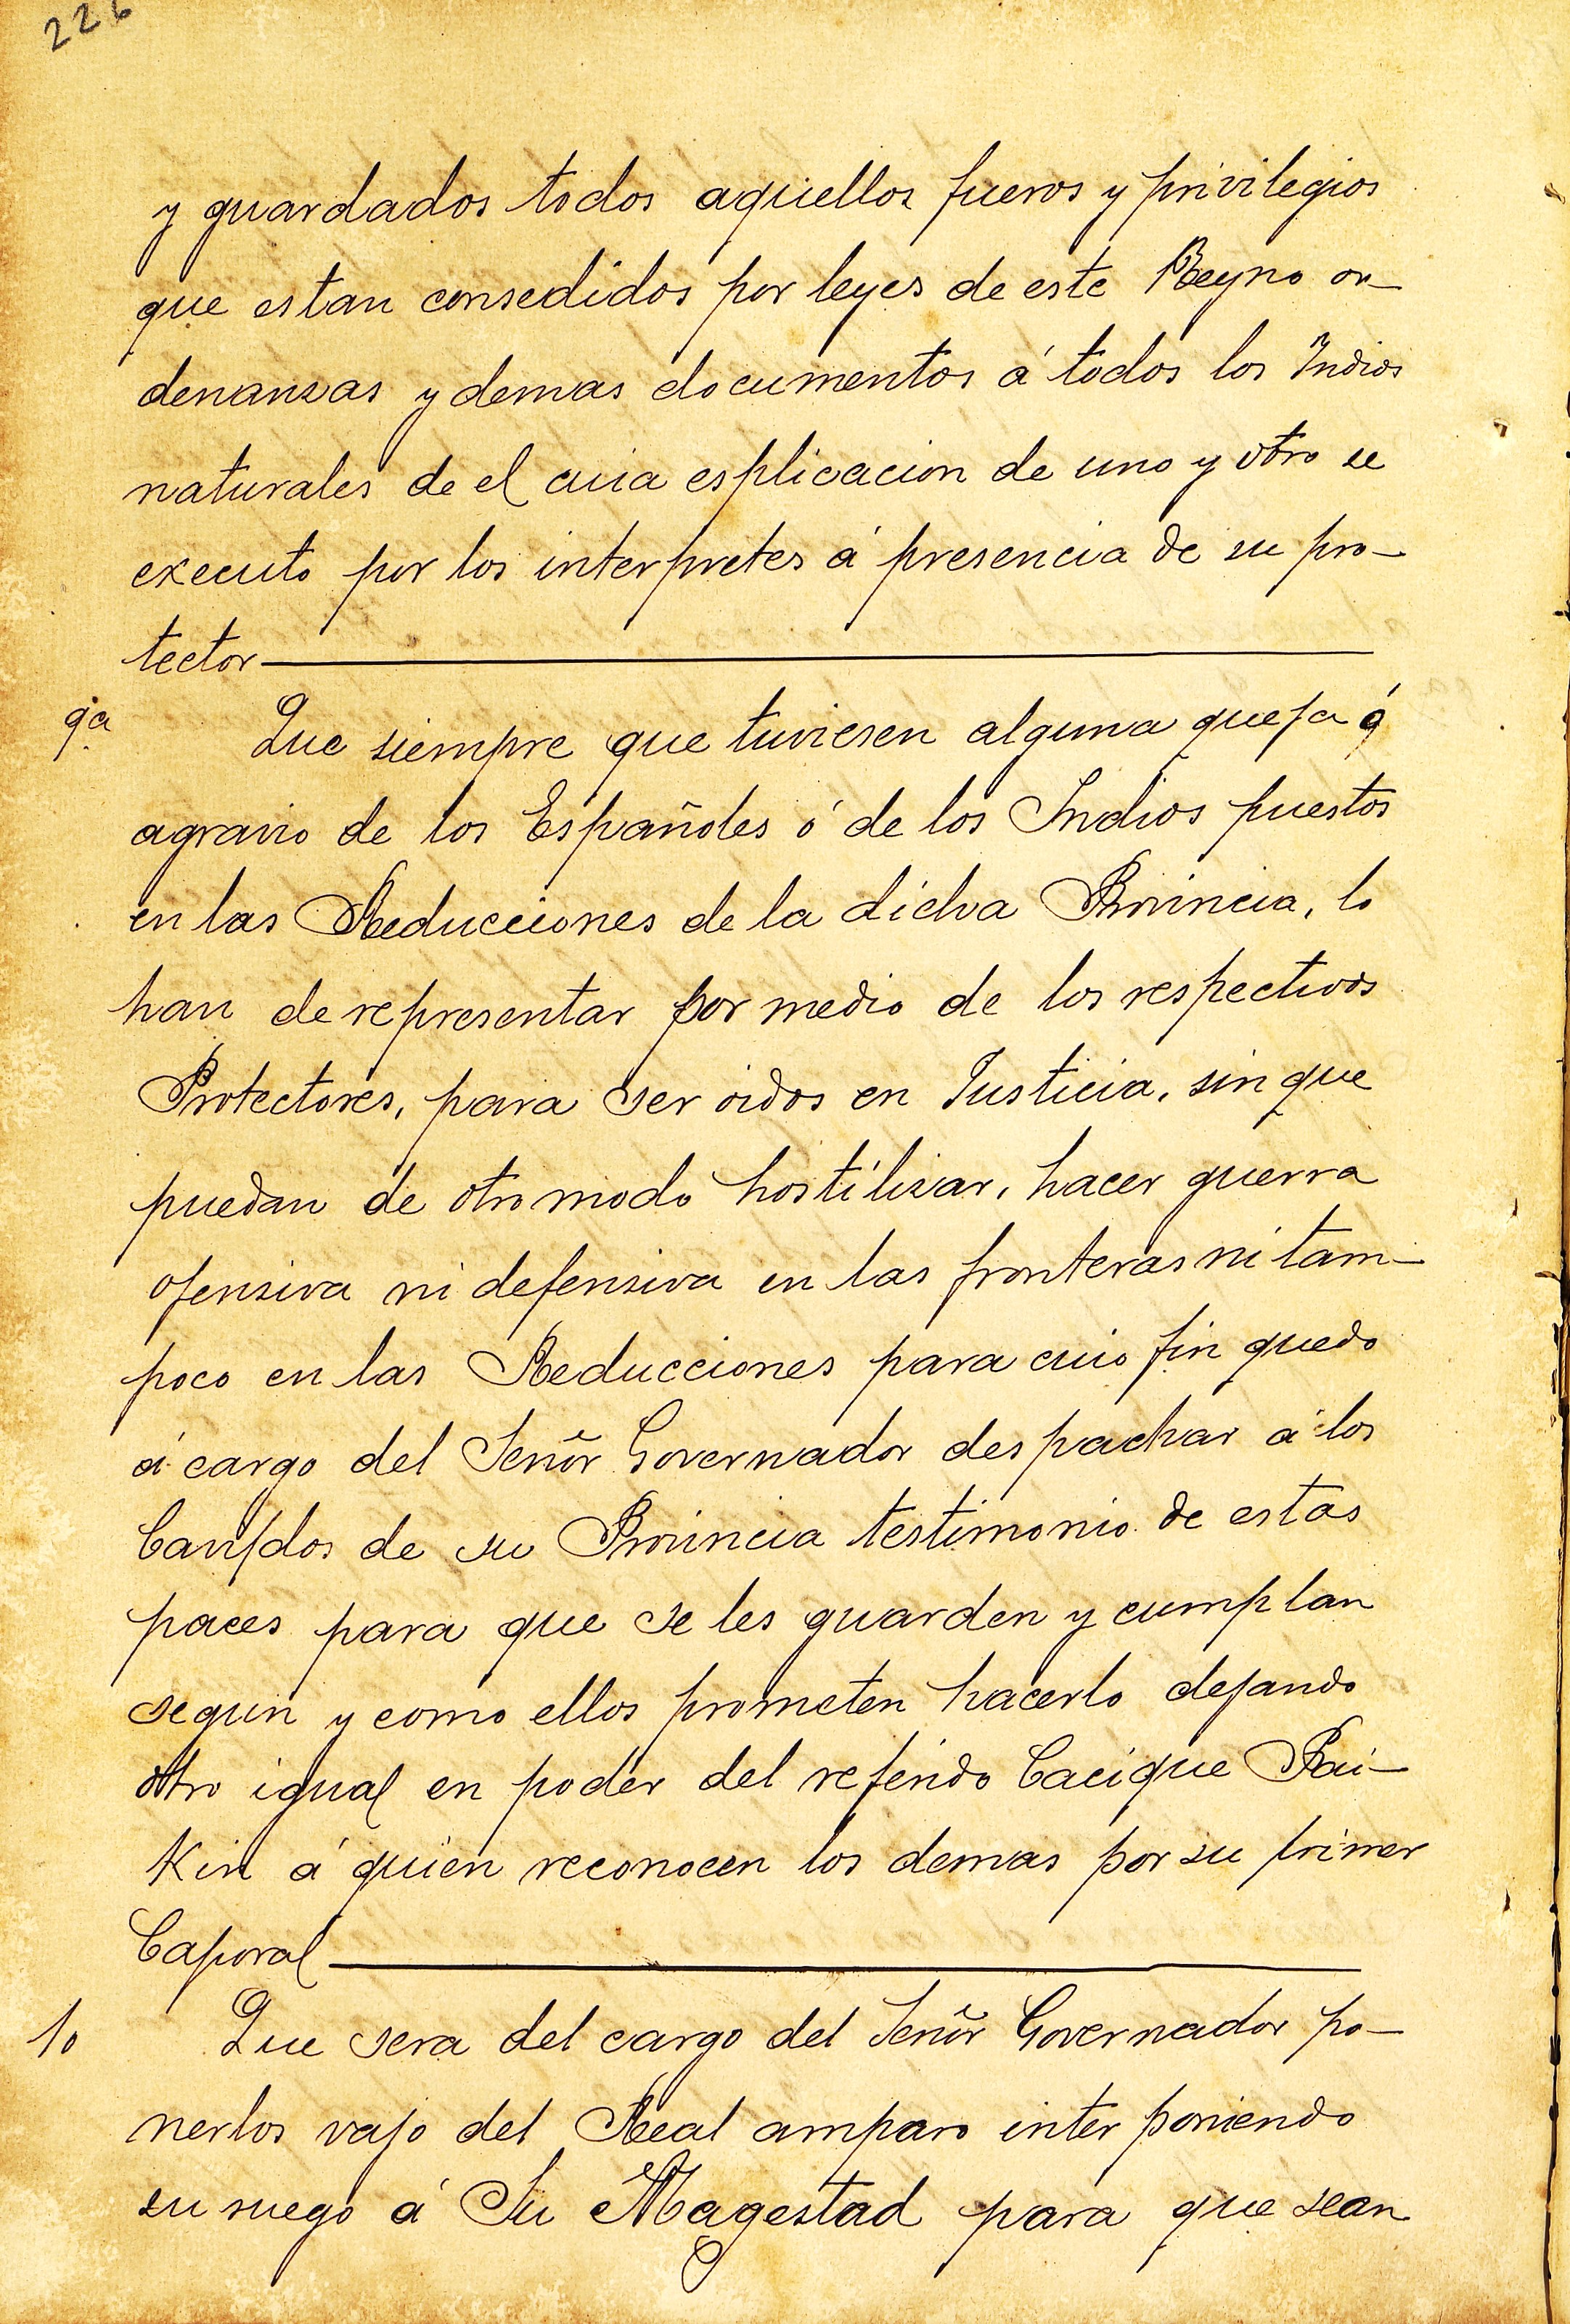 226
y guardados todos aquellos fueros y privilegios
que estan consedidos por leyes de este Reyno or-
denansas y demas documentos á todos los Indios
naturales de el cuia esplicacion de uno y otro se
executo por los interpretes á presencia de su pro-
tector
9a Que siempre que tuviesen alguna quefa ó
agravio de los Españoles ó de los Indios puestos
en las Reducciones de la dicha Provincia, lo
han de representar por medio de los respectivos
Protectores, para ser oidos en Justicia, sin que
puedan de otro modo hostilisar, hacer guerra
ofensiva ni defensiva en las fronteras ni tam-
poco en las Reducciones para cuio fin quedo
á cargo del Señor Governador despachar á los
de su Provincia testimonio de estas
paces para que se les guarden y cumplan
segun y como ellos prometen hacerlo defando
otro igual en poder del referido Cacique Pai-
Kin á quien reconocen los demas por su primer
Caporal
10 Que sera del cargo del Señor Governador po-
nerlos vajo del Real amparo interponiendo
su ruego á Su Magestad para que sean